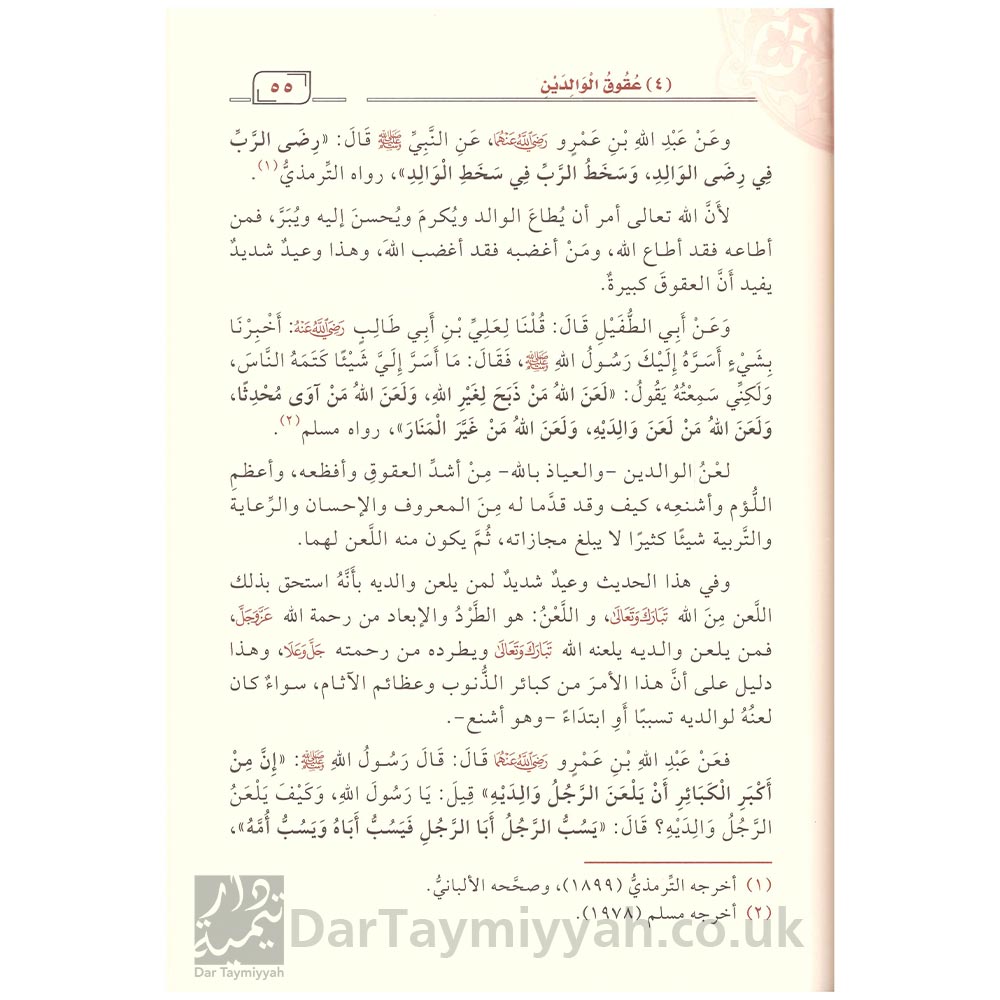 (٤) عُقُوقُ الْوَالِدَيْنِ
٥٥
وعَنْ عَبْدِ اللهِ بْنِ عَمْرٍو رَضِيَ اللَّهُ عَنْهُمَا، عَنِ النَّبِيِّ ﷺ قَالَ: «رِضَى الرَّبِّ
فِي رِضَى الوَالِدِ، وَسَخَطُ الرَّبِّ فِي سَخَطِ الْوَالِدِ»، رواه التِّرمذيُّ(١).
لأَنَّ الله تعالى أمر أن يُطاعَ الوالد ويُكرمَ ويُحسنَ إليه ويُبَرَّ، فمن
أطاعه فقد أطاع الله، ومَنْ أغضبه فقد أغضب اللهَ، وهذا وعيدٌ شديدٌ
يفيد أَنَّ العقوقَ كبيرةٌ.
وَعَنْ أَبِي الطُّفَيْلِ قَالَ: قُلْنَا لِعَلِيِّ بْنِ أَبِي طَالِبٍ رَضِيَ اللَّهُ عَنْهُ: أَخْبِرْنَا
بِشَيْءٍ أَسَرَّهُ إِلَيْكَ رَسُولُ اللهِ ﷺ، فَقَالَ: مَا أَسَرَّ إِلَيَّ شَيْئًا كَتَمَهُ النَّاسَ،
وَلَكِنِّي سَمِعْتُهُ يَقُولُ: «لَعَنَ اللهُ مَنْ ذَبَحَ لِغَيْرِ اللهِ، وَلَعَنَ اللهُ مَنْ آوَى مُحْدِثًا،
وَلَعَنَ اللهُ مَنْ لَعَنَ وَالِدَيْهِ، وَلَعَنَ اللهُ مَنْ غَيَّرَ الْمَنَارَ»، رواه مسلم(٢).
لعْنُ الوالدين -والعياذ بالله- مِنْ أشدِّ العقوقِ وأفظعه، وأعظمِ
اللُّؤم وأشنعِه، كيف وقد قدَّما له مِنَ المعروف والإحسان والرِّعاية
والتَّربية شيئًا كثيرًا لا يبلغ مجازاته، ثُمَّ يكون منه اللَّعن لهما.
وفي هذا الحديث وعيدٌ شديدٌ لمن يلعن والديه بأَنَّهُ استحق بذلك
اللَّعن مِنَ الله تَبَارَكَ وَتَعَالَى، و اللَّعْنُ: هو الطَّرْدُ والإبعاد من رحمة الله عَزَّ وَجَلَّ،
فمن يلعن والديه يلعنه الله تَبَارَكَ وَتَعَالَى ويطرده من رحمته جَلَّ وَعَلَا، وهذا
دليل على أنَّ هذا الأمرَ من كبائر الذُّنوب وعظائم الآثام، سواءٌ كان
لعنُهُ لوالديه تسببًا أَوِ ابتدَاءً -وهو أشنع-.
فعَنْ عَبْدِ اللهِ بْنِ عَمْرٍو رَضِيَ اللَّهُ عَنْهُمَا قَالَ: قَالَ رَسُولُ اللهِ ﷺ: «إِنَّ مِنْ
أَكْبَرِ الْكَبَائِرِ أَنْ يَلْعَنَ الرَّجُلُ وَالِدَيْهِ» قِيلَ: يَا رَسُولَ اللهِ، وَكَيْفَ يَلْعَنُ
الرَّجُلُ وَالِدَيْهِ؟ قَالَ: «يَسُبُّ الرَّجُلُ أَبَا الرَّجُلِ فَيَسُبُّ أَبَاهُ وَيَسُبُّ أُمَّهُ»،
(١) أخرجه التِّرمذيُّ (١٨٩٩)، وصحَّحه الألبانيُّ.
(٢) أخرجه مسلم (١٩٧٨).
دار تيمية
Dar Taymiyyah
DarTaymiyyah.co.uk